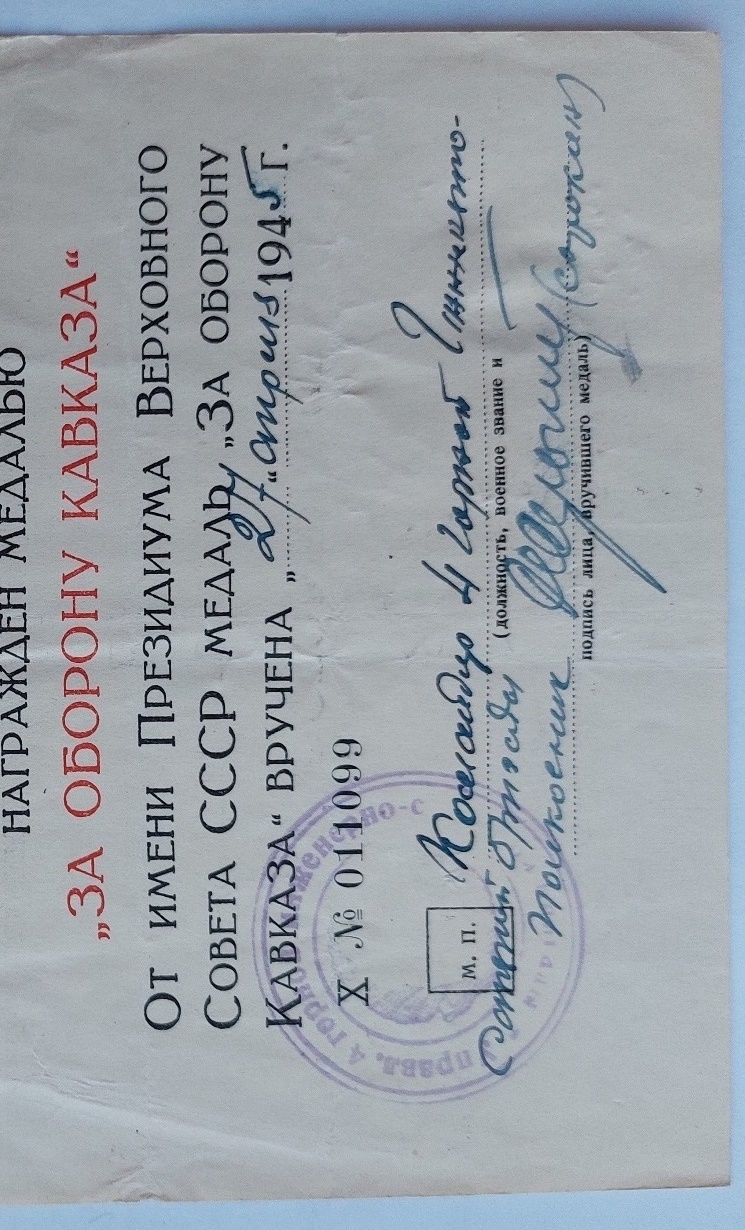 НАГРАЖДЕН МЕДАЛЬЮ
„ЗА ОБОРОНУ КАВКАЗА“
ОТ ИМЕНИ ПРЕЗИДИУМА ВЕРХОВНОГО
СОВЕТА СССР МЕДАЛЬ „ЗА ОБОРОНУ
КАВКАЗА“ ВРУЧЕНА „27“ апреля 1945 г.
Х № 011099
Командир 4 горной
М. П.
(должность, военное звание и
бригады
Полковник (Сорокин)
подпись лица, вручившего медаль)
правл. 4 горно инженерно-с